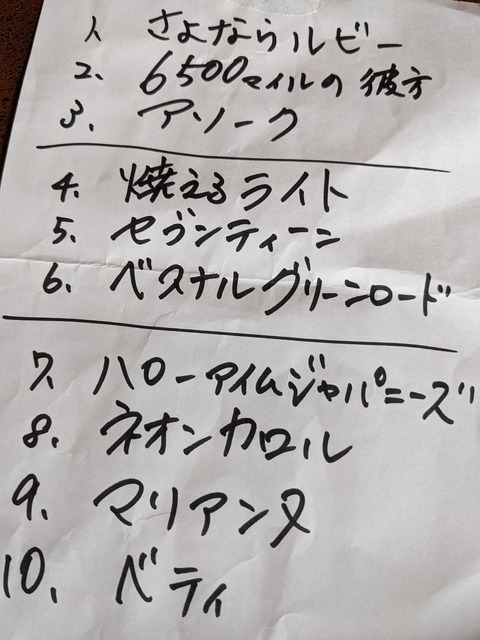 1. さよならルビー
2. 6500マイルの彼方
3. アソーク
4. 焼えるライト
5. セヴンティーン
6. ベスナルグリーンロード
7. ハローアイムジャパニーズ
8. ネオンカロル
9. マリアンヌ
10. ベティ